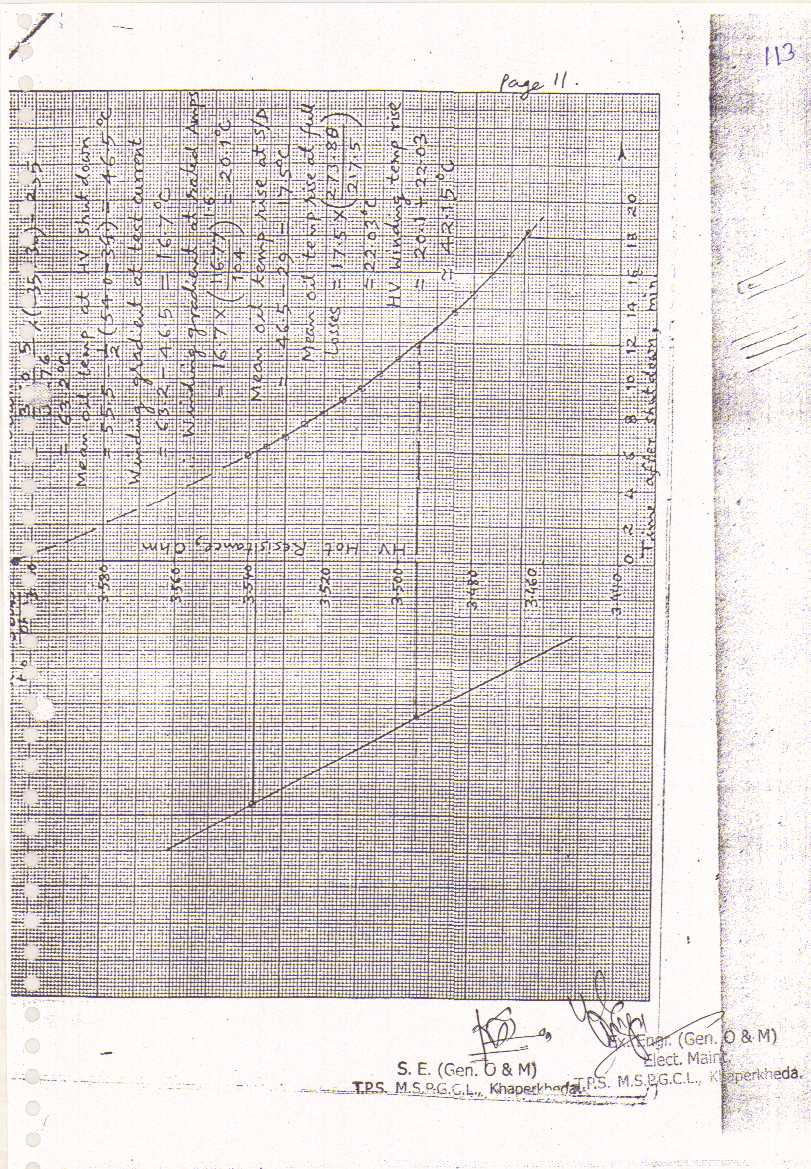 113
Page 11.
= 63.2°C
Mean oil temp at HV shut down
= 55.5 - 1/2 (54.0-36) = 46.5°C
Winding gradient at test current
= 63.2 - 46.5 = 16.7°C
∴ Winding gradient at rated Amps
= 20.1°C
Mean oil temp rise at S/D
= 46.5 - 29 = 17.5°C
Mean oil temp rise at full
Losses = 17.5 × (273.88/217.5)
= 22.03°C
HV Winding temp rise
= 20.1 + 22.03
≈ 42.15°C
HV Hot Resistance, Ohm
3.580
3.560
3.540
3.520
3.500
3.480
3.460
3.440
0 2 4 6 8 10 12 14 16 18 20
Time after shutdown, min
S. E. (Gen. O & M)
T.P.S. M.S.P.G.C.L., Khaperkheda.
Ex. Engr. (Gen. O & M)
Elect. Maint.
T.P.S. M.S.P.G.C.L., Khaperkheda.